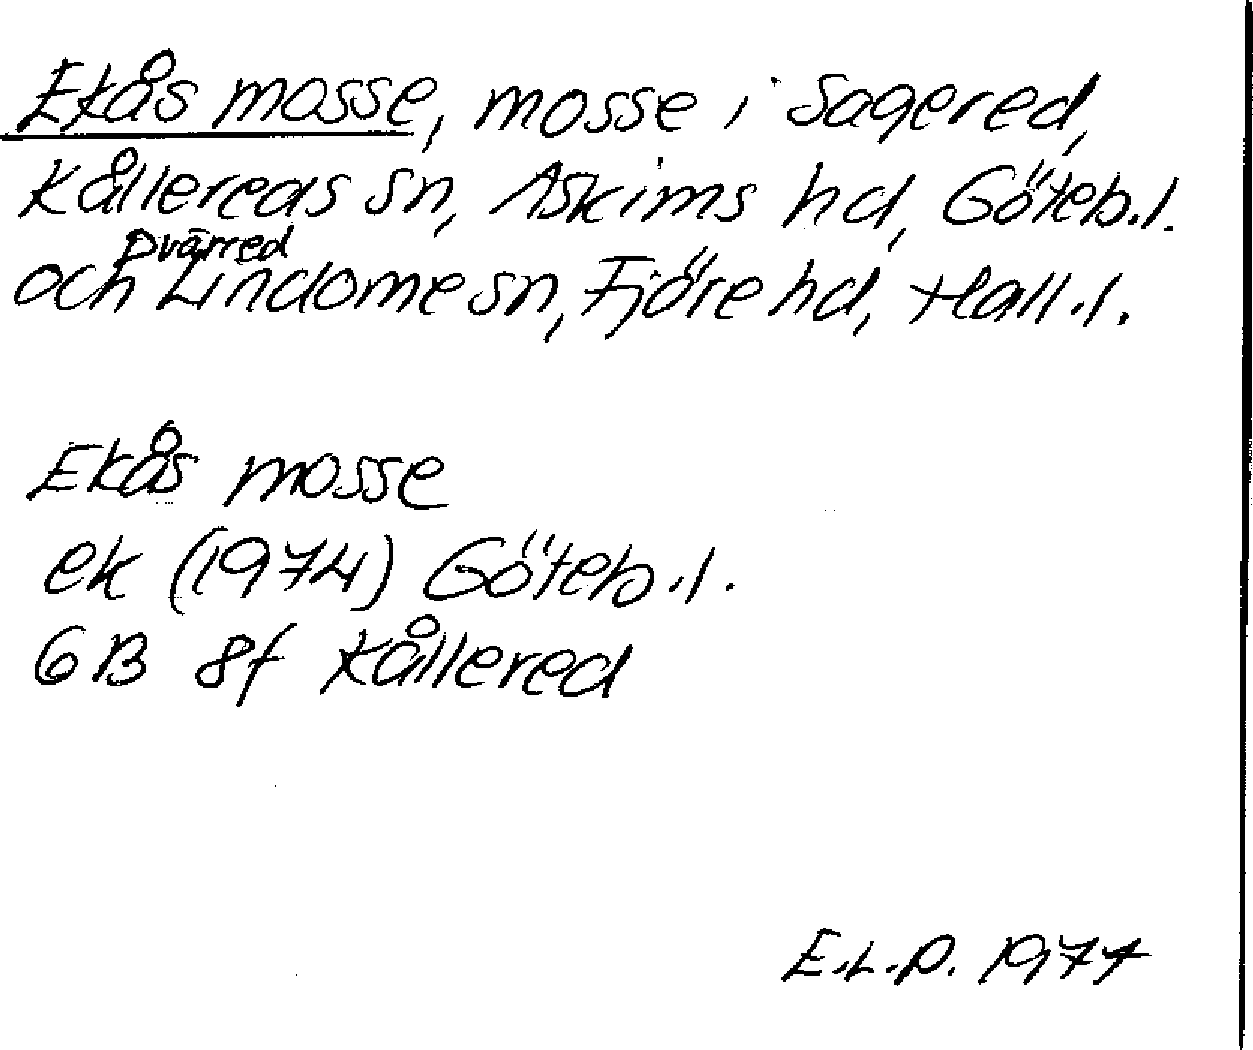 Ekås mosse, mosse i Sagered,
Kållereds sn, Askims hd, Göteb.l.
och Dvärred Lindome sn, Fjäre hd, Hall.l.
Ekås mosse
ek (1974) Göteb.l.
6B 8f Kållered
E.L.P. 1977